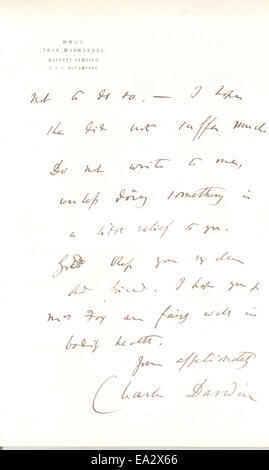 not to do so. — I hope
she did not suffer much.
Do not write to me,
unless doing something is
a little relief to you.
God help you my dear
old friend. I hope you &
Mrs Fox are fairly well in
bodily health.
Yours affectionately
Charles Darwin
alamy
alamy
EA2X66
www.alamy.com